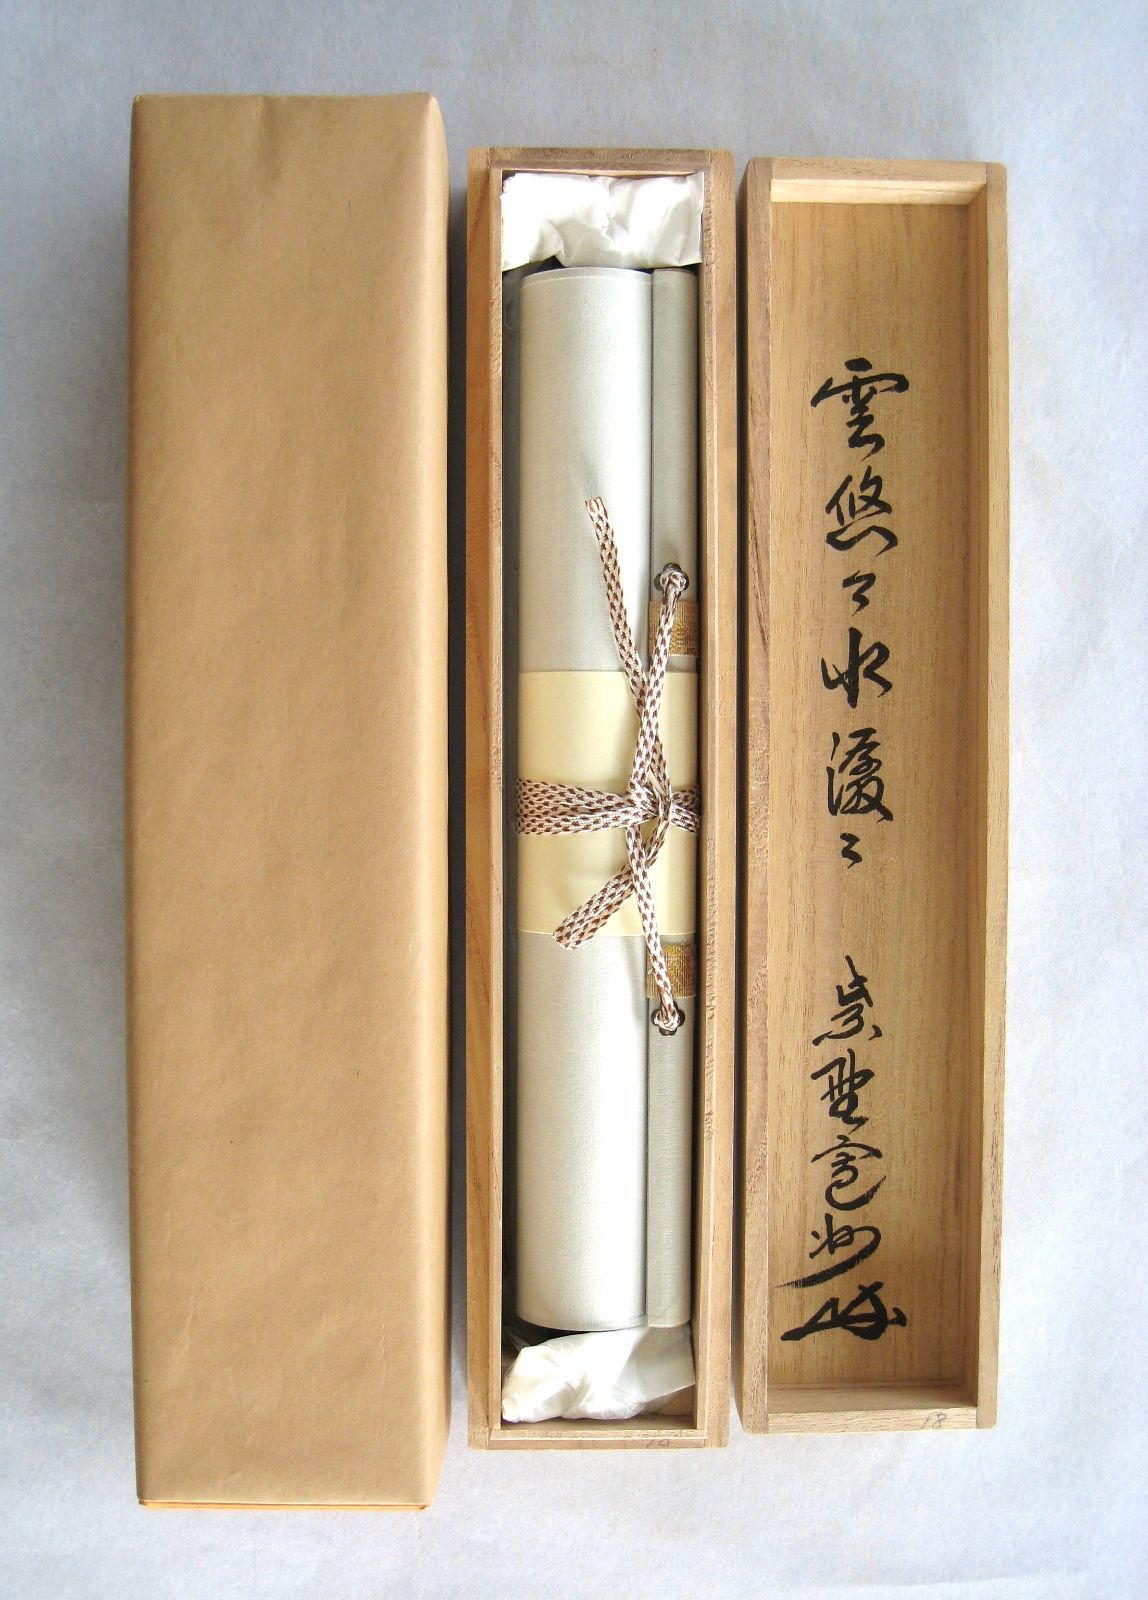 雲悠々水潺々 紫野寛州
18